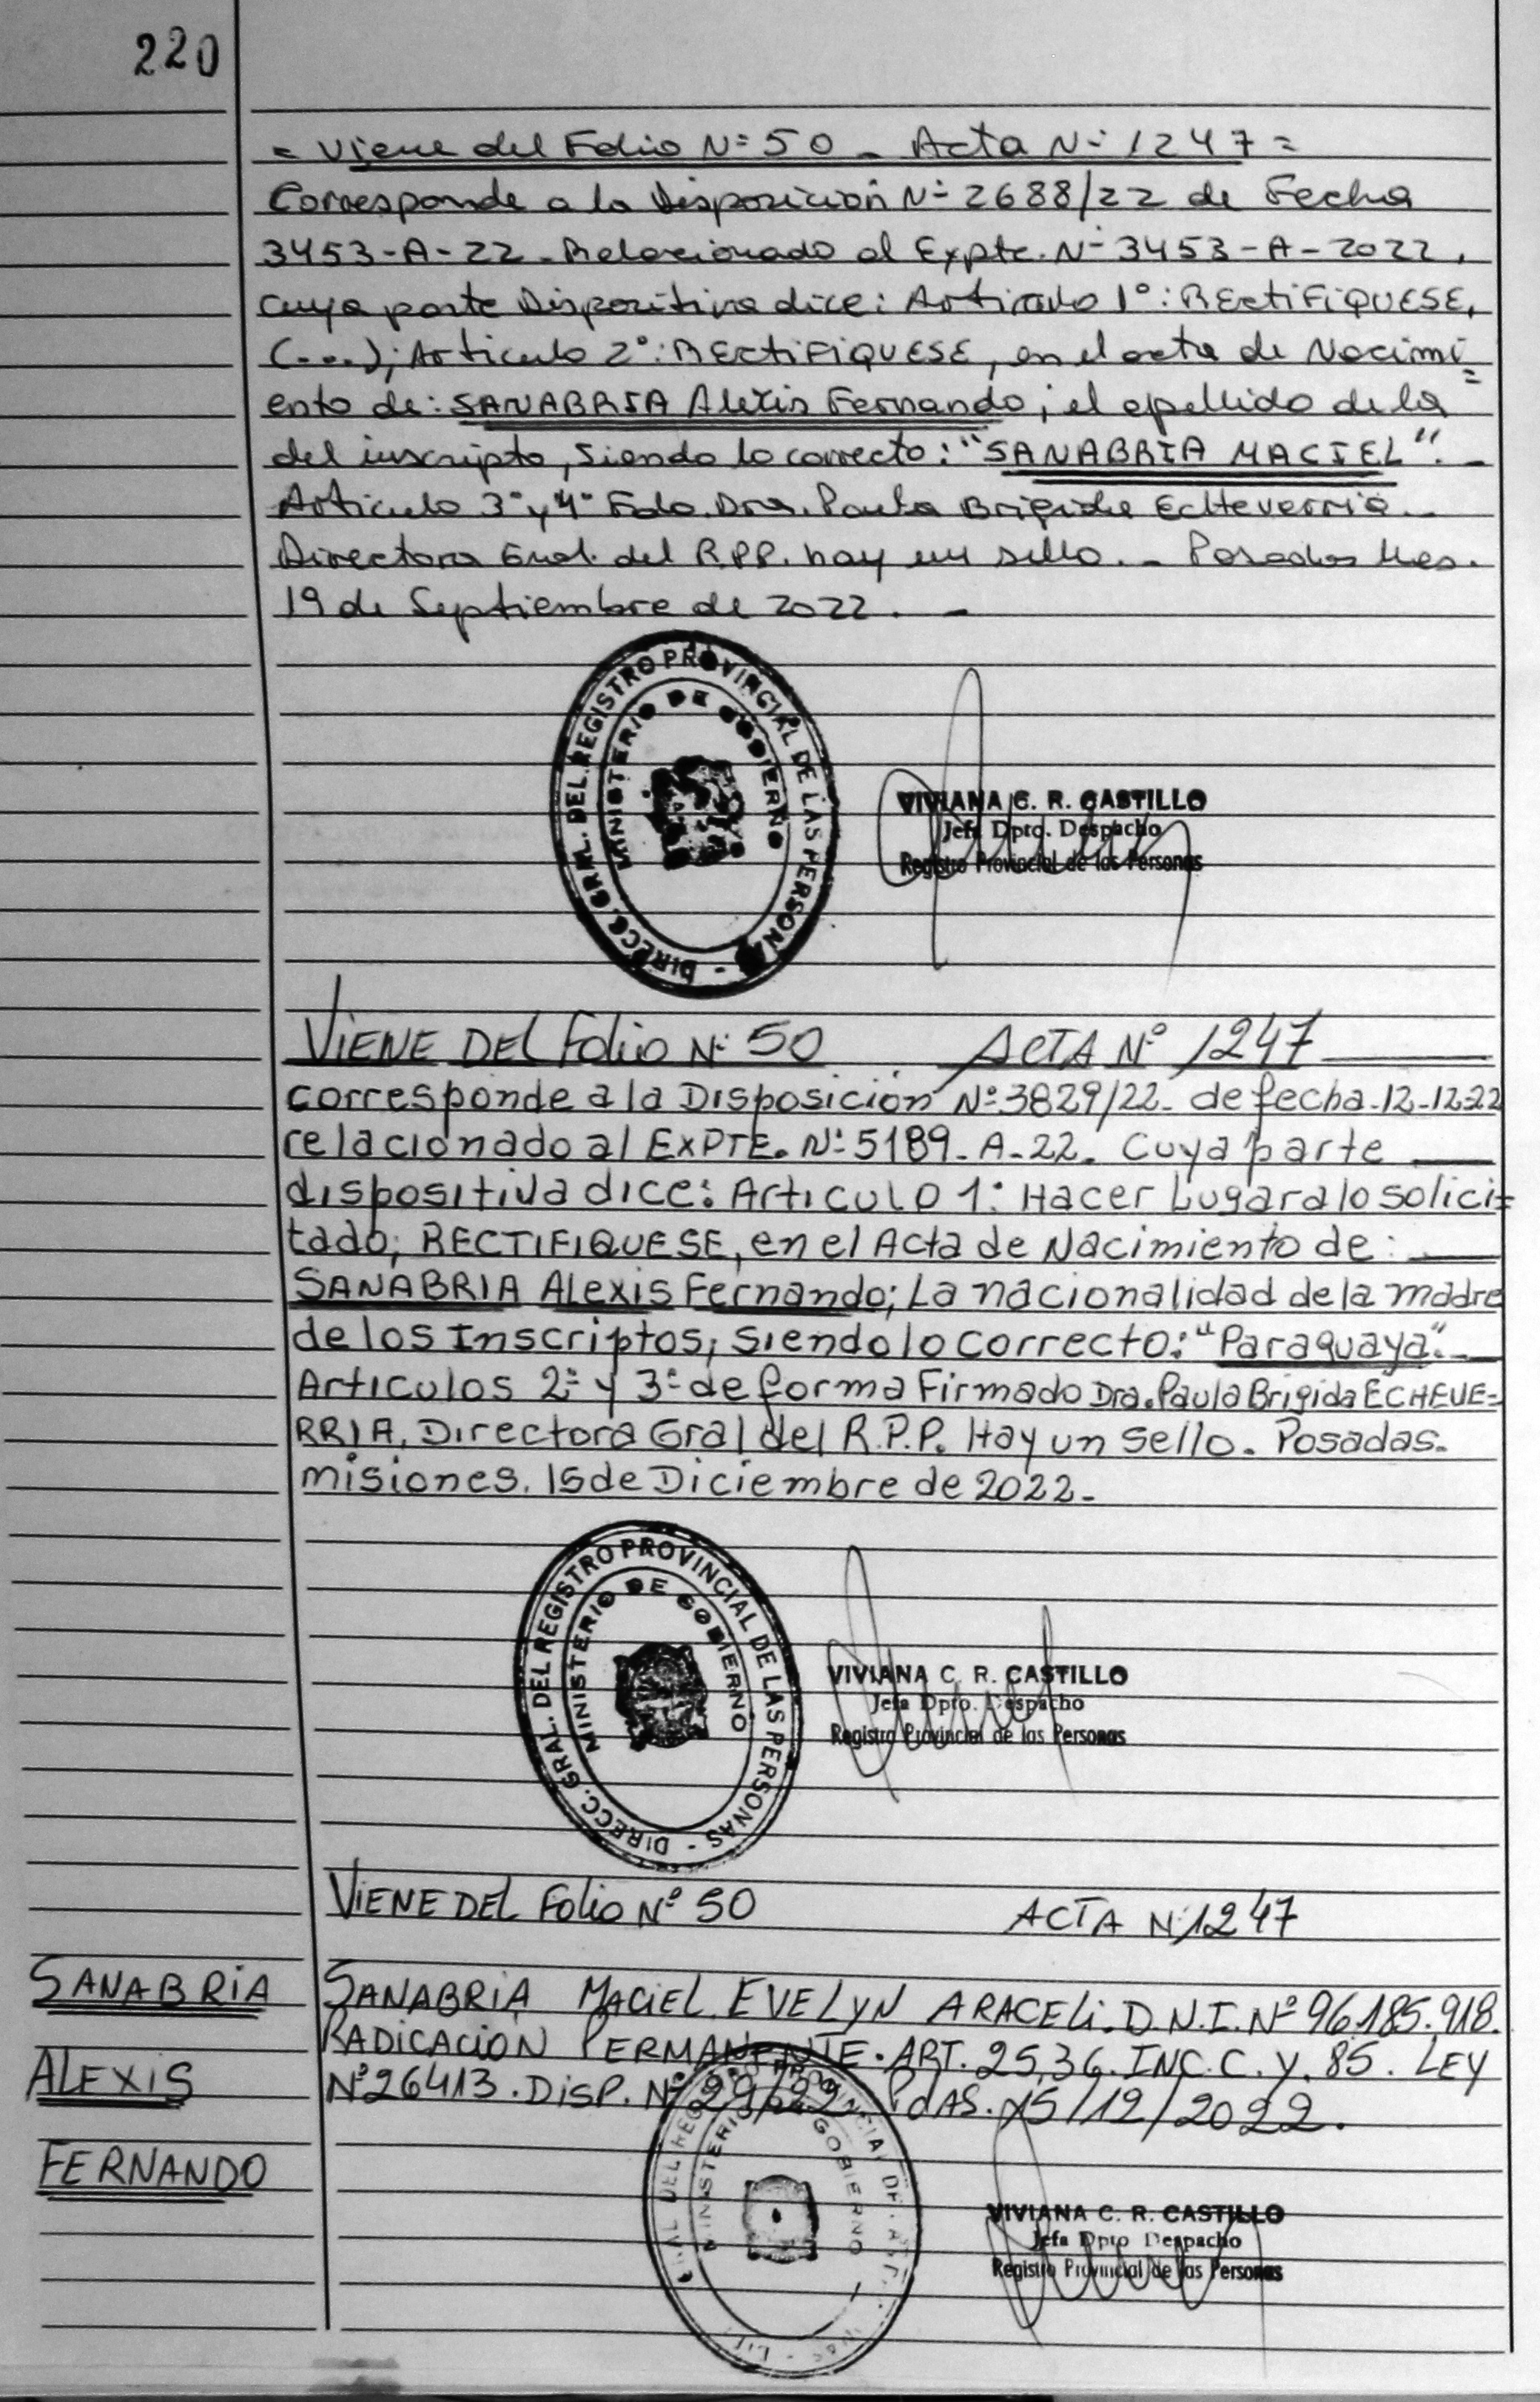 220
= Viene del Folio Nº 50 - Acta Nº 1247 =
Corresponde a la Disposición Nº 2688/22 de Fecha
3453-A-22. Relacionado al Expte. Nº 3453-A-2022,
cuya parte Dispositiva dice: Articulo 1º: RECTIFIQUESE,
(...); Articulo 2º: RECTIFIQUESE, en el acta de Nacimi=
ento de: SANABRIA Alexis Fernando; el apellido de la
del inscripto, siendo lo correcto: "SANABRIA MACIEL". -
Articulo 3º y 4º Fdo. Dra. Paula Brigida Echeverria.
Directora Gral. del R.P.P. hay un sello. - Posadas Mes.
19 de Septiembre de 2022. -
DIRECC. GRAL. DEL REGISTRO PROVINCIAL DE LAS PERSONAS -
MINISTERIO DE GOBIERNO
VIVIANA C. R. CASTILLO
Jefa Dpto. Despacho
Registro Provincial de las Personas
VIENE DEL Folio Nº 50 ACTA Nº 1247
corresponde a la Disposición Nº 3829/22 - de fecha - 12-12-22
relacionado al EXPTE. Nº 5189-A-22. Cuya parte
dispositiva dice: Articulo 1: Hacer Lugar a lo solici=
tado; RECTIFIQUESE, en el Acta de Nacimiento de:
SANABRIA Alexis Fernando; La nacionalidad de la madre
de los Inscriptos; siendo lo correcto: "Paraguaya".
Articulos 2º y 3º de forma Firmado Dra. Paula Brigida ECHEVE=
RRIA, Directora Gral del R.P.P. Hay un sello. Posadas.
misiones. 15 de Diciembre de 2022.
DIRECC. GRAL. DEL REGISTRO PROVINCIAL DE LAS PERSONAS -
MINISTERIO DE GOBIERNO
VIVIANA C. R. CASTILLO
Jefa Dpto. Despacho
Registro Provincial de las Personas
VIENE DEL Folio Nº 50 ACTA Nº 1247
SANABRIA
ALEXIS
FERNANDO
SANABRIA MACIEL EVELYN ARACELI. D.N.I. Nº 96.185.918.
RADICACION PERMANENTE. ART. 25,36. INC.C. y. 85. LEY
Nº 26413. DISP. Nº 29/22 PdAS. 15/12/2022.
GOBIERNO
VIVIANA C. R. CASTILLO
Jefa Dpto Despacho
Registro Provincial de las Personas